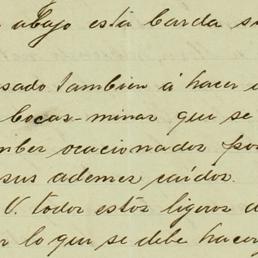 abajo está barda s
sado tambien á hacer
bocas-minas que se
mber ocacionados por
sus ademes caidos.
V. todos estos ligeros d
r lo que se debe hacer